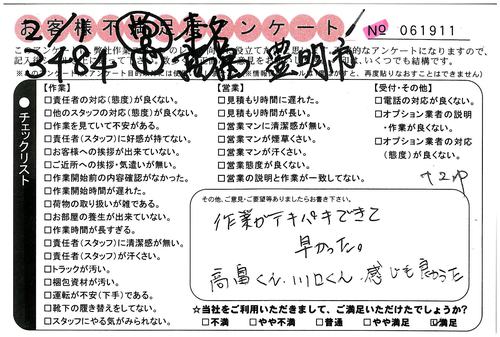 お客様不満足度アンケート
No 061911
2/1
3484
豊明市
【作業】
□責任者の対応（態度）が良くない。
□他のスタッフの対応（態度）が良くない。
□作業を見ていて不安がある。
□責任者（スタッフ）に好感が持てない。
□お客様への挨拶が出来ていない。
□ご近所への挨拶・気遣いが無い。
□作業開始前の内容確認がなかった。
□作業開始時間が遅れた。
□荷物の取り扱いが雑である。
□お部屋の養生が出来ていない。
□作業時間が長すぎる。
□責任者（スタッフ）に清潔感が無い。
□責任者（スタッフ）が汗くさい。
□トラックが汚い。
□梱包資材が汚い。
□運転が不安（下手）である。
□靴下の履き替えをしてない。
□スタッフにやる気がみられない。
【営業】
□見積もり時間に遅れた。
□見積もり時間が長い。
□営業マンに清潔感が無い。
□営業マンが煙草くさい。
□営業マンが汗くさい。
□営業態度が良くない。
□営業の説明と作業が一致してない。
【受付・その他】
□電話の対応が良くない。
□オプション業者の説明
・作業が良くない。
□オプション業者の対応
（態度）が良くない。
チェックリスト
その他、ご意見・ご要望等ありましたらお書き下さい。
作業がテキパキできて
早かった。
高畠くん、川口くん、感じも良かった
☆当社をご利用いただきまして、ご満足いただけたでしょうか？
□不満 □やや不満 □普通 □やや満足 ☑満足